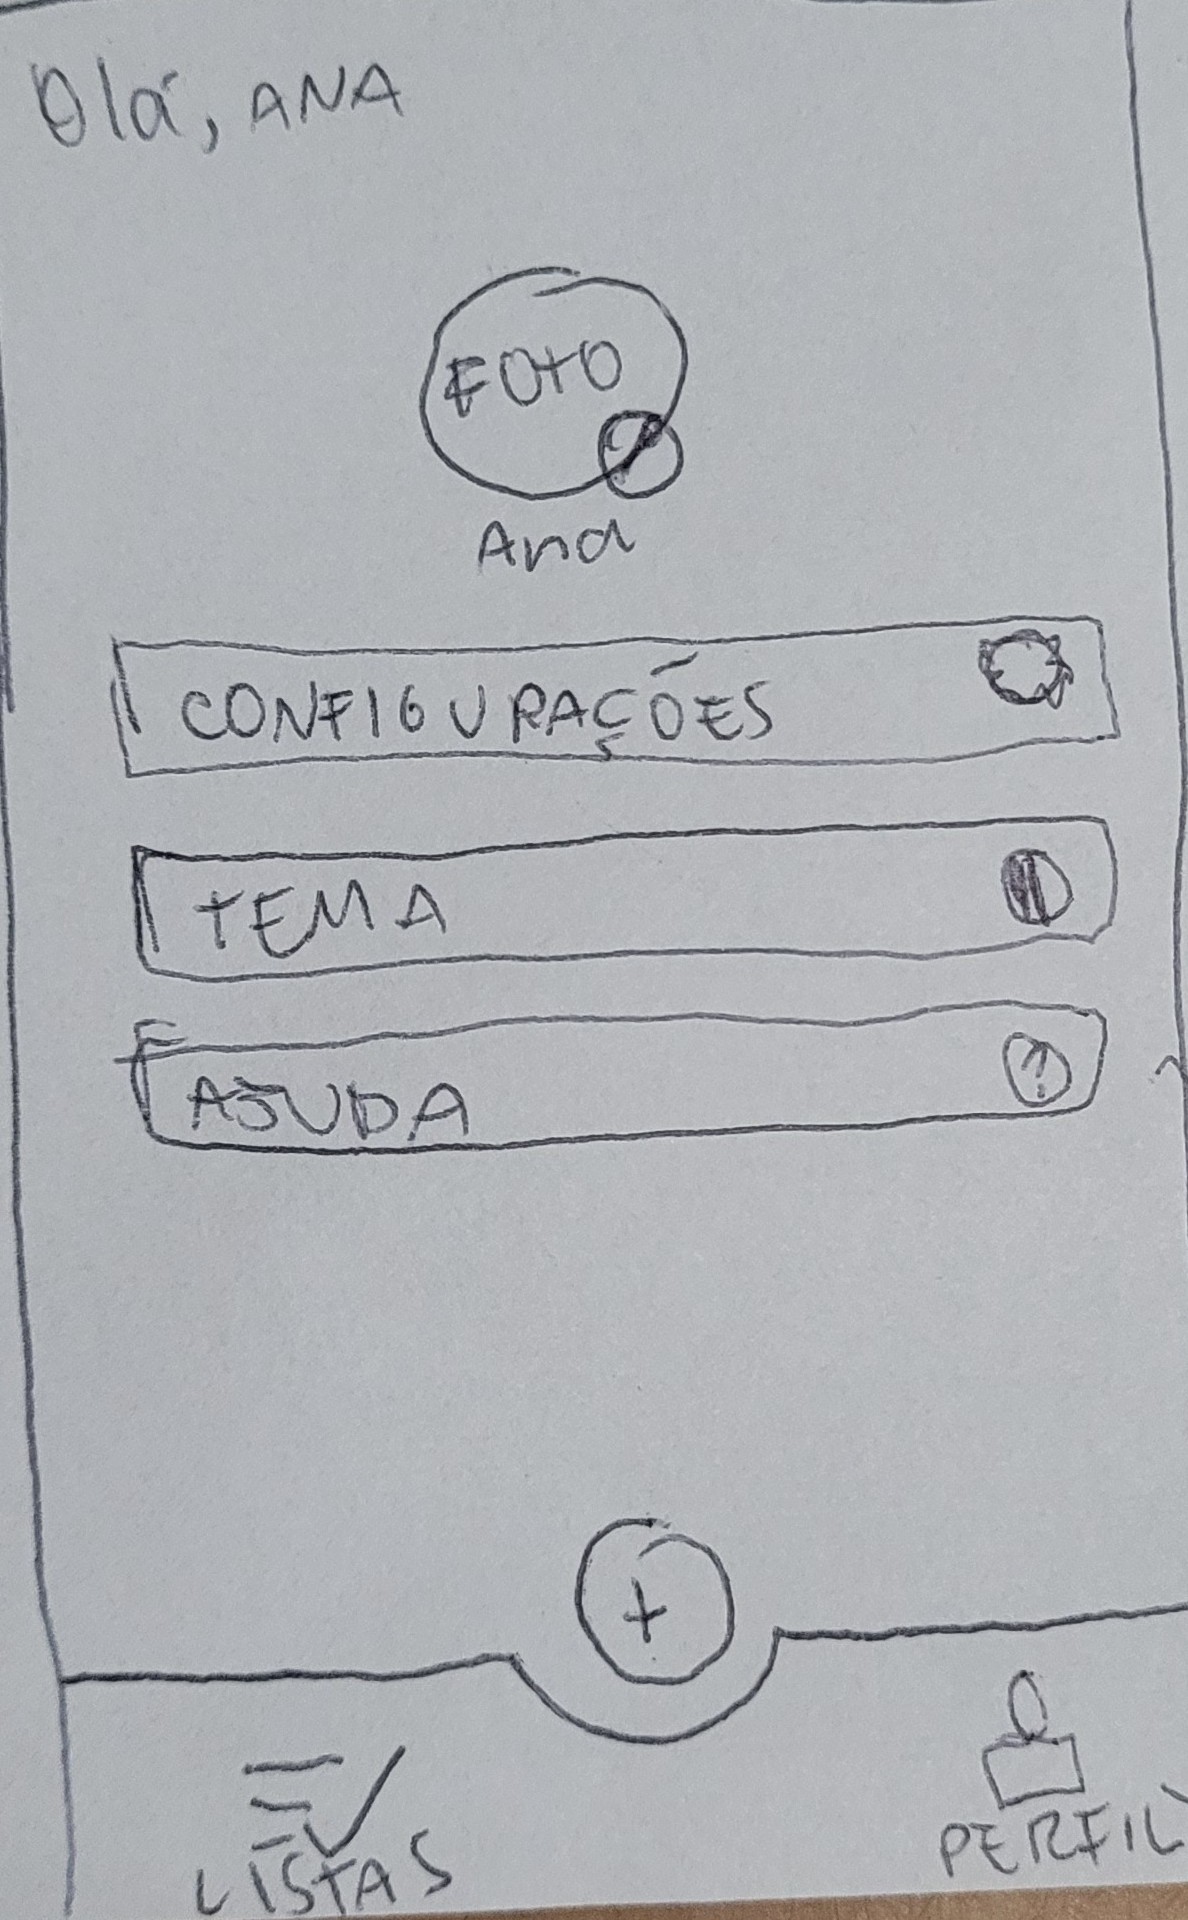 Olá, ANA
FOTO
Ana
CONFIGURAÇÕES
TEMA
AJUDA
?
+
LISTAS
PERFIL